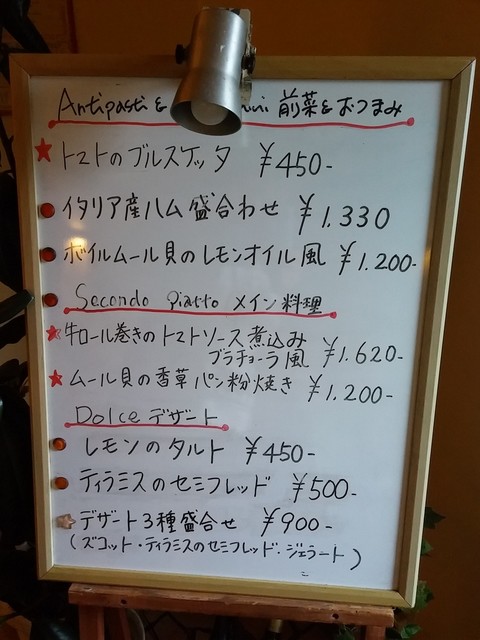 Antipasti & 前菜&おつまみ
トマトのブルスケッタ ¥450-
イタリア産ハム盛合わせ ¥1.330
ボイルムール貝のレモンオイル風 ¥1.200-
Secondo piatto メイン料理
牛ロール巻きのトマトソース煮込み
ブラチョーラ風 ¥1.620-
ムール貝の香草パン粉焼き ¥1.200-
Dolce デザート
レモンのタルト ¥450-
ティラミスのセミフレッド ¥500-
デザート3種盛合せ ¥900-
(ズコット・ティラミスのセミフレッド・ジェラート)